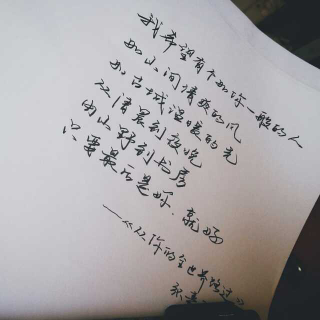 我希望有个如你一般的人
如山间清爽的风
如古城温暖的光
从清晨到夜晚
由山野到书房
只要最后是你.就好
——《从你的全世界路过》
张嘉